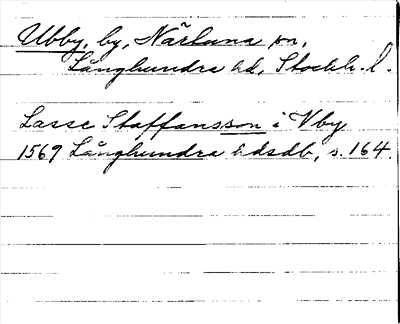 Ubby, by, Närtuna sn,
Långhundra hd, Stockh. l.
Lasse Staffansson i Vby
1569 Långhundra hdsdb, s. 164.